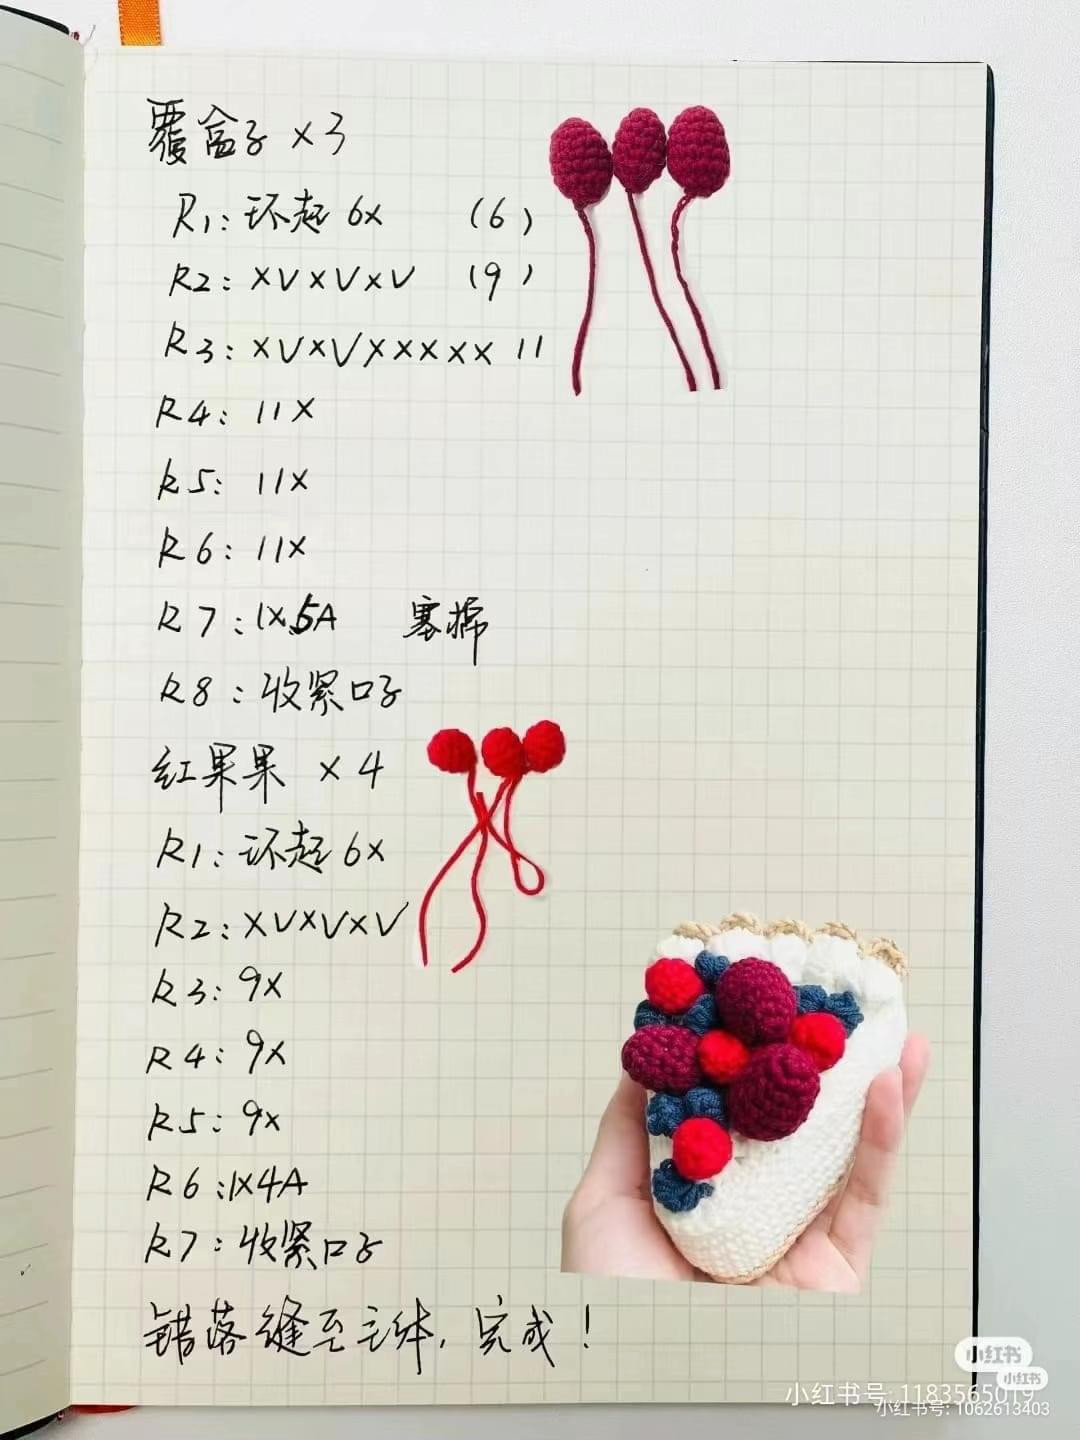 覆盆子 ×3
R1: 环起 6X (6)
R2: XVXVXV (9)
R3: XVXVXXXXX 11
R4: 11X
R5: 11X
R6: 11X
R7: 1X5A 塞棉
R8: 收紧口子
红果果 ×4
R1: 环起 6X
R2: XVXVXV
R3: 9X
R4: 9X
R5: 9X
R6: 1X4A
R7: 收紧口子
错落缝至主体, 完成!
小红书
小红书
小红书号: 1183565019
小红书号: 1062613403